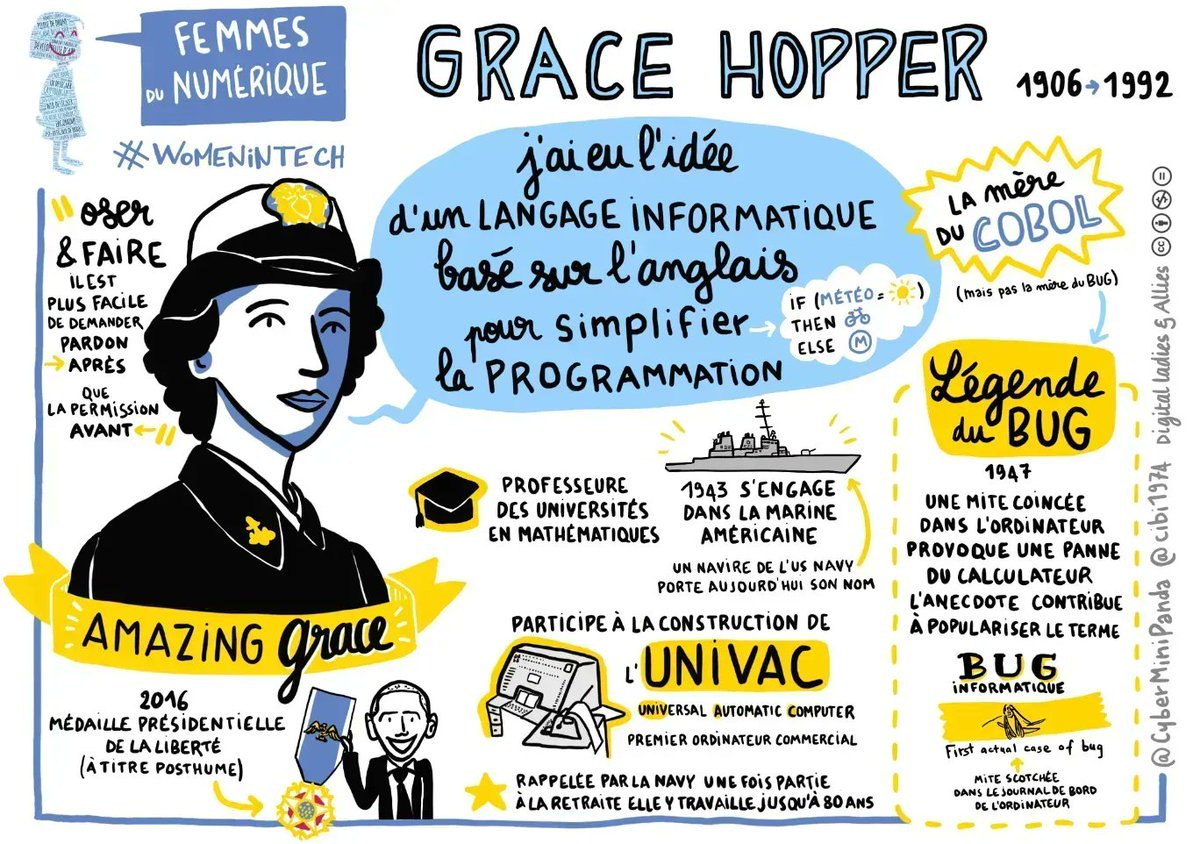 FEMMES
DU NUMÉRIQUE
#WOMENINTECH
GRACE HOPPER
1906→1992
"oser
& FAIRE
IL EST
PLUS FACILE
DE DEMANDER
PARDON
→APRÈS
QUE
LA PERMISSION
AVANT←"
j'ai eu l'idée
d'un LANGAGE INFORMATIQUE
basé sur l'anglais
pour simplifier
la PROGRAMMATION
IF (MÉTÉO = )
THEN
ELSE M
LA mère
DU COBOL
(mais pas la mère du BUG)
Légende
du BUG
1947
UNE MITE COINCÉE
DANS L'ORDINATEUR
PROVOQUE UNE PANNE
DU CALCULATEUR
L'ANECDOTE CONTRIBUE
À POPULARISER LE TERME
BUG
INFORMATIQUE
First actual case of bug
MITE SCOTCHÉE
DANS LE JOURNAL DE BORD
DE L'ORDINATEUR
PROFESSEURE
DES UNIVERSITÉS
EN MATHÉMATIQUES
1943 S'ENGAGE
DANS LA MARINE
AMÉRICAINE
UN NAVIRE DE L'US NAVY
PORTE AUJOURD'HUI SON NOM
PARTICIPE À LA CONSTRUCTION DE
L'UNIVAC
UNIVERSAL AUTOMATIC COMPUTER
PREMIER ORDINATEUR COMMERCIAL
RAPPELÉE PAR LA NAVY UNE FOIS PARTIE
À LA RETRAITE ELLE Y TRAVAILLE JUSQU'À 80 ANS
AMAZING grace
2016
MÉDAILLE PRÉSIDENTIELLE
DE LA LIBERTÉ
(À TITRE POSTHUME)
@CyberMiniPanda @cibi1974 Digital ladies & Allies